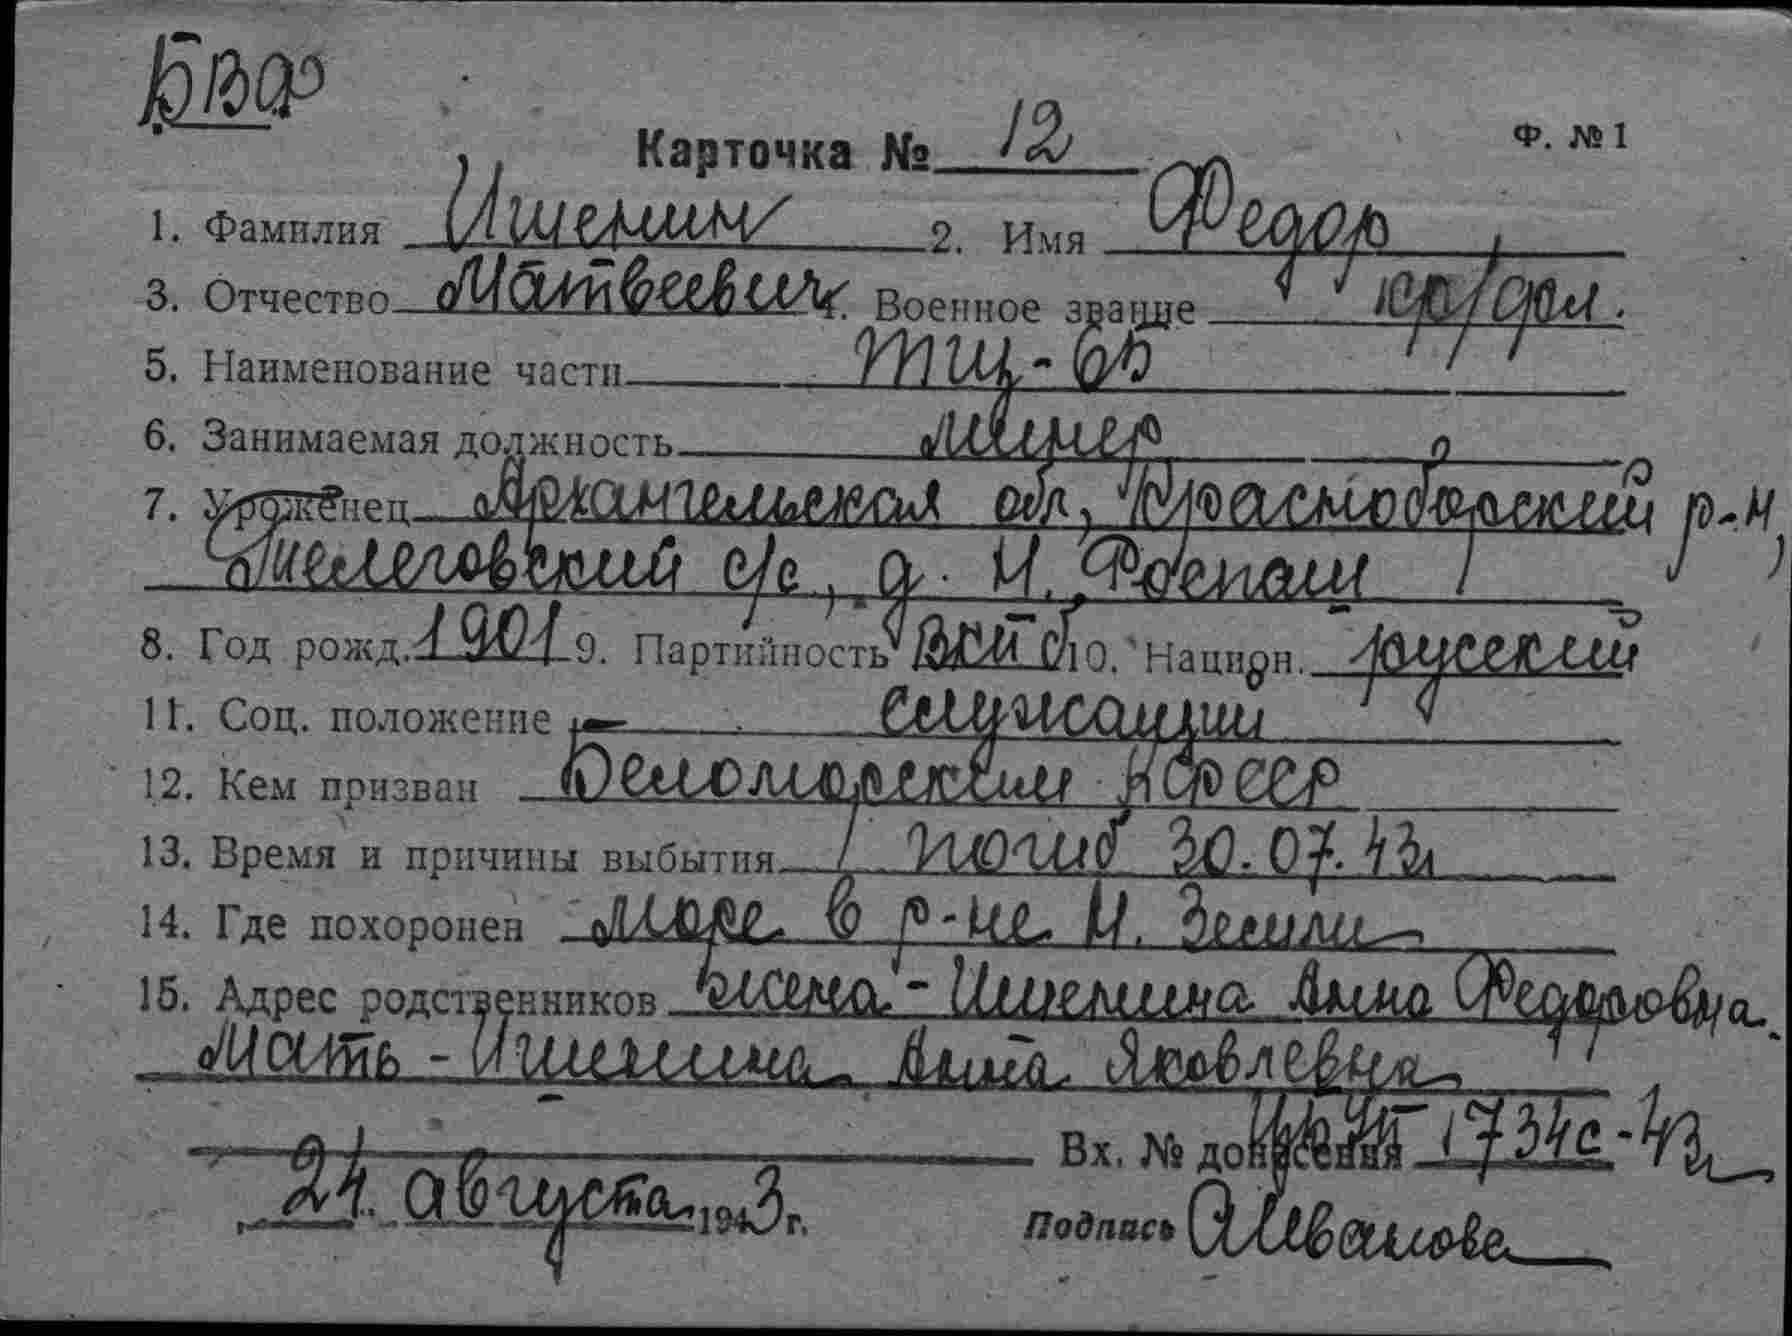 БВФ
Карточка № 12
Ф. № 1
1. Фамилия Ишенин 2. Имя Федор
3. Отчество Матвеевич 4. Военное звание кр/фл.
5. Наименование части ТЩ-65
6. Занимаемая должность минер
7. Уроженец Архангельская обл, Красноборский р-н,
с/с, д. Н.
8. Год рожд. 1901 9. Партийность ВКПб 10. Национ. русский
11. Соц. положение служащий
12. Кем призван Беломорским КФССР
13. Время и причины выбытия погиб 30.07.43г
14. Где похоронен море в р-не Н. Земли
15. Адрес родственников жена - Ишенина Анна Федоровна
Мать - Ишенина Анна Яковлевна
Вх. № донесения 1734с-43г
24 августа 1943 г.
Подпись АИванова